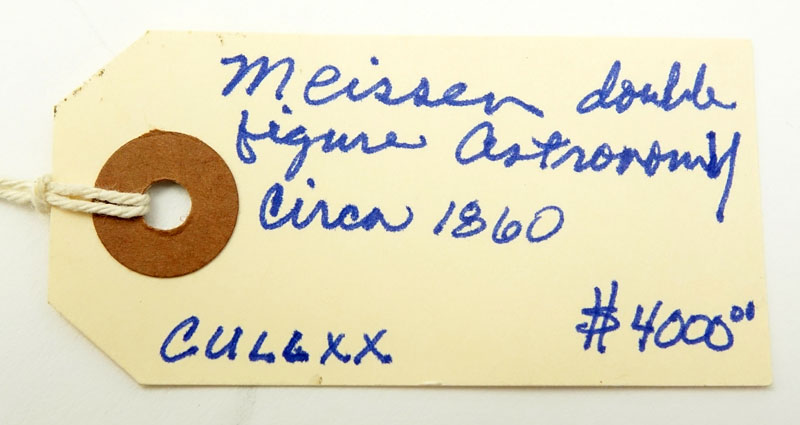 Meissen double
figure Astronomy
Circa 1860
$4000.00
CULLXX